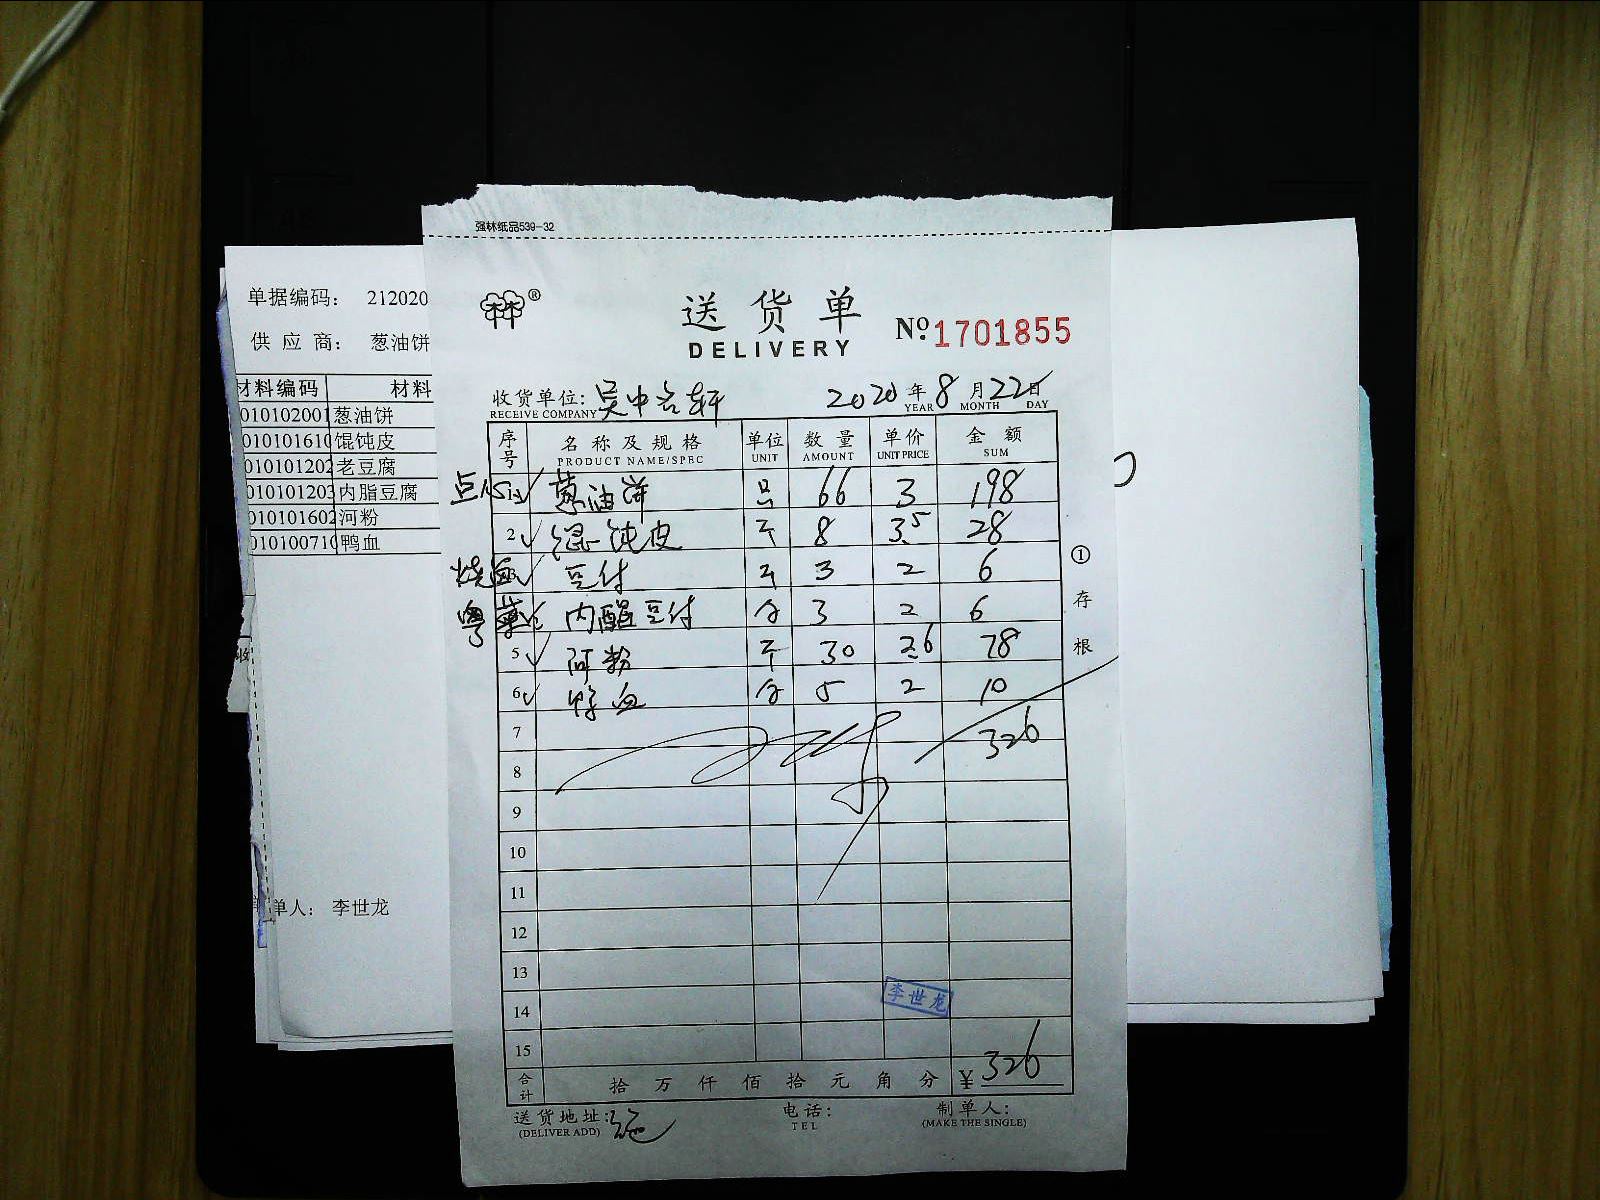 强林纸品539-32
单据编码: 212020
供 应 商: 葱油饼
材料编码 材料
010102001 葱油饼
010101610 馄饨皮
010101202 老豆腐
010101203 内脂豆腐
010101602 河粉
010100710 鸭血
单人: 李世龙
林®
送货单
DELIVERY
№1701855
收货单位: 吴中 轩 2020年8月22日
RECEIVE COMPANY YEAR MONTH DAY
序号 名称及规格 单位 数量 单价 金额
PRODUCT NAME/SPEC UNIT AMOUNT UNIT PRICE SUM
点心 1 葱油饼 只 66 3 198
2 混饨皮 斤 8 3.5 28
烧 3 豆付 3 2 6
粤菜 4 内酯豆付 合 3 2 6
5 河粉 斤 30 2.6 78
6 鸭血 合 5 2 10
7 326
8
9
10
11
12
13
14 李世龙
15
合计 拾 万 仟 佰 拾 元 角 分 ¥ 326
①存根
送货地址: 电话: 制单人:
(DELIVER ADD) TEL (MAKE THE SINGLE)